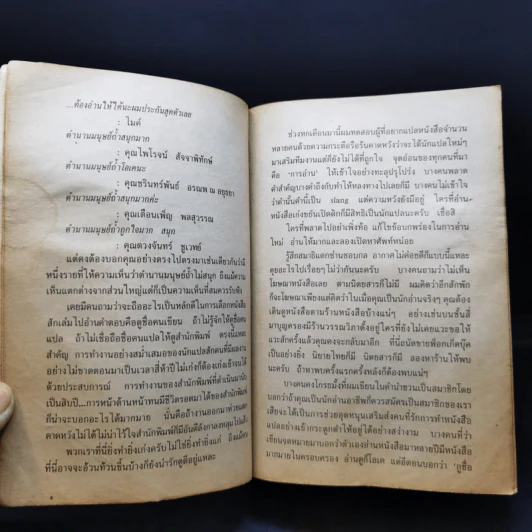 ...ต้องอ่านให้ได้นะผมประกันสุดตัวเลย
: ไมค์
ตำนานมนุษย์ถ้ำสนุกมาก
: คุณไพโรจน์ สัจจาพิทักษ์
ตำนานมนุษย์ถ้ำโอเคนะ
: คุณชรินทร์พันธ์ อรณพ ณ อยุธยา
ตำนานมนุษย์ถ้ำสนุกมากค่ะ
: คุณเตือนเพ็ญ พลสุวรรณ
ตำนานมนุษย์ถ้ำถูกใจมาก สนุก
: คุณดวงจันทร์ ชูเวทย์
แต่คงต้องบอกคุณอย่างตรงไปตรงมาเช่นเดียวกันว่ามี
หนึ่งรายที่ให้ความเห็นว่าตำนานมนุษย์ถ้ำไม่สนุก ถึงแม้ความ
เห็นแตกต่างจากส่วนใหญ่แต่ก็เป็นความเห็นที่สมควรรับฟัง
เคยมีคนถามว่าจะถืออะไรเป็นหลักดีในการเลือกหนังสือ
สักเล่มไปอ่านคำตอบคือดูชื่อคนเขียน ถ้าไม่รู้จักให้ดูชื่อคน
แปล ถ้าไม่เชื่อถือชื่อคนแปลให้ดูสำนักพิมพ์ ตรงนี้แหละ
สำคัญ การทำงานอย่างสม่ำเสมอของนักแปลสักคนที่มีผลงาน
อย่างไม่ขาดตอนมาเป็นเวลาสี่ห้าปีไม่เก่งก็ต้องเก่งเข้าจนได้
ด้วยประสบการณ์ การทำงานของสำนักพิมพ์ที่ดำเนินมานัก
เป็นสิบปี...การหน้าด้านหน้าทนมีชีวิตรอดมาได้ของสำนักพิมพ์
ก็น่าจะบอกอะไรได้มากมาย นั่นคือถ้างานออกมาห่วยแตก
คาดหวังไม่ได้ไม่น่าไว้ใจสำนักพิมพ์ก็มีอันดีดังกาลงหลุมไปแล้ว
พวกเราที่นี่ยิ่งทำยิ่งเก่งครับไม่ใช่ยิ่งทำยิ่งแก่ ถึงแม้คน
ที่นี่อาจจะอ้วนท้วนขึ้นบ้างก็ยังน่ารักดูดีอยู่แหละ
ช่วงหกเดือนมานี้ผมทดสอบผู้ที่อยากแปลหนังสือจำนวน
หลายคนด้วยความกระตือรือร้นคาดหวังว่าจะได้นักแปลใหม่ๆ
มาเสริมทีมงานแต่ก็ยังไม่ได้ที่ถูกใจ จุดอ่อนของทุกคนที่มา
คือ 'การอ่าน' ให้เข้าใจอย่างทะลุปรุโปร่ง บางคนพลาด
คำสำคัญบางคำถึงกับทำให้หลงทางไปเลยก็มี บางคนไม่เข้าใจ
ว่าคำนั้นคำนี้เป็น slang แต่ความหวังยังมีอยู่ ใครที่อ่าน
หนังสือเก่งขยันเปิดดิกก็มีสิทธิเป็นนักแปลนะครับ เชื่อสิ
ใครที่พลาดไปอย่าเพิ่งท้อ แก้ไขข้อบกพร่องในการอ่าน
ใหม่ อ่านให้มากและลองเปิดหาศัพท์หน่อย
รู้สึกสมาธิแตกซ่านชอบกล อากาศไม่ค่อยดีก็แบบนี้แหละ
คุยอะไรไปเรื่อยๆ ไม่ว่ากันนะครับ บางคนถามว่าไม่เห็น
โฆษณาหนังสือเลย ตามนิตยสารก็ไม่มี ผมคิดว่าอีกสักพัก
ก็จะโฆษณาเพียงแต่คิดว่าในเมื่อคุณเป็นนักอ่านจริงๆ คุณต้อง
เดินดูหนังสือตามร้านหนังสือบ้างแน่ๆ อย่างเช่นบนชั้นสี่
มาบุญครองมีร้านวรรณวิภาตั้งอยู่ใครที่ยังไม่เคยแวะขอให้
แวะสักครั้งแล้วคุณคงจะกลับมาอีก ที่นี่มีนัดขายพ็อกเก็ตบุ๊ค
เป็นอย่างยิ่ง นิยายไทยก็มี นิตยสารก็มี ลองหาร้านให้พบ
นะครับ ถ้าหาพบครั้งแรกครั้งหลังก็ต้องพบแน่ๆ
บางคนคงโกรธมั้งที่ผมเขียนในคำนำชวนเป็นสมาชิกโดย
บอกว่าถ้าคุณเป็นนักอ่านอาชีพก็ควรสมัครเป็นสมาชิกของเรา
เสียจะได้เป็นการช่วยอุดหนุนเสริมส่งคนที่รักการทำหนังสือ
แปลอย่างเข้ากระดูกดำให้อยู่ได้อย่างสง่างาม บางคนที่ว่า
เขียนจดหมายมาบอกว่าตัวเองอ่านหนังสือมาหลายปีมีหนังสือ
มากมายในครอบครอง อ่านดูก็โอเค แต่อีตอนบอกว่า 'กูซื้อ